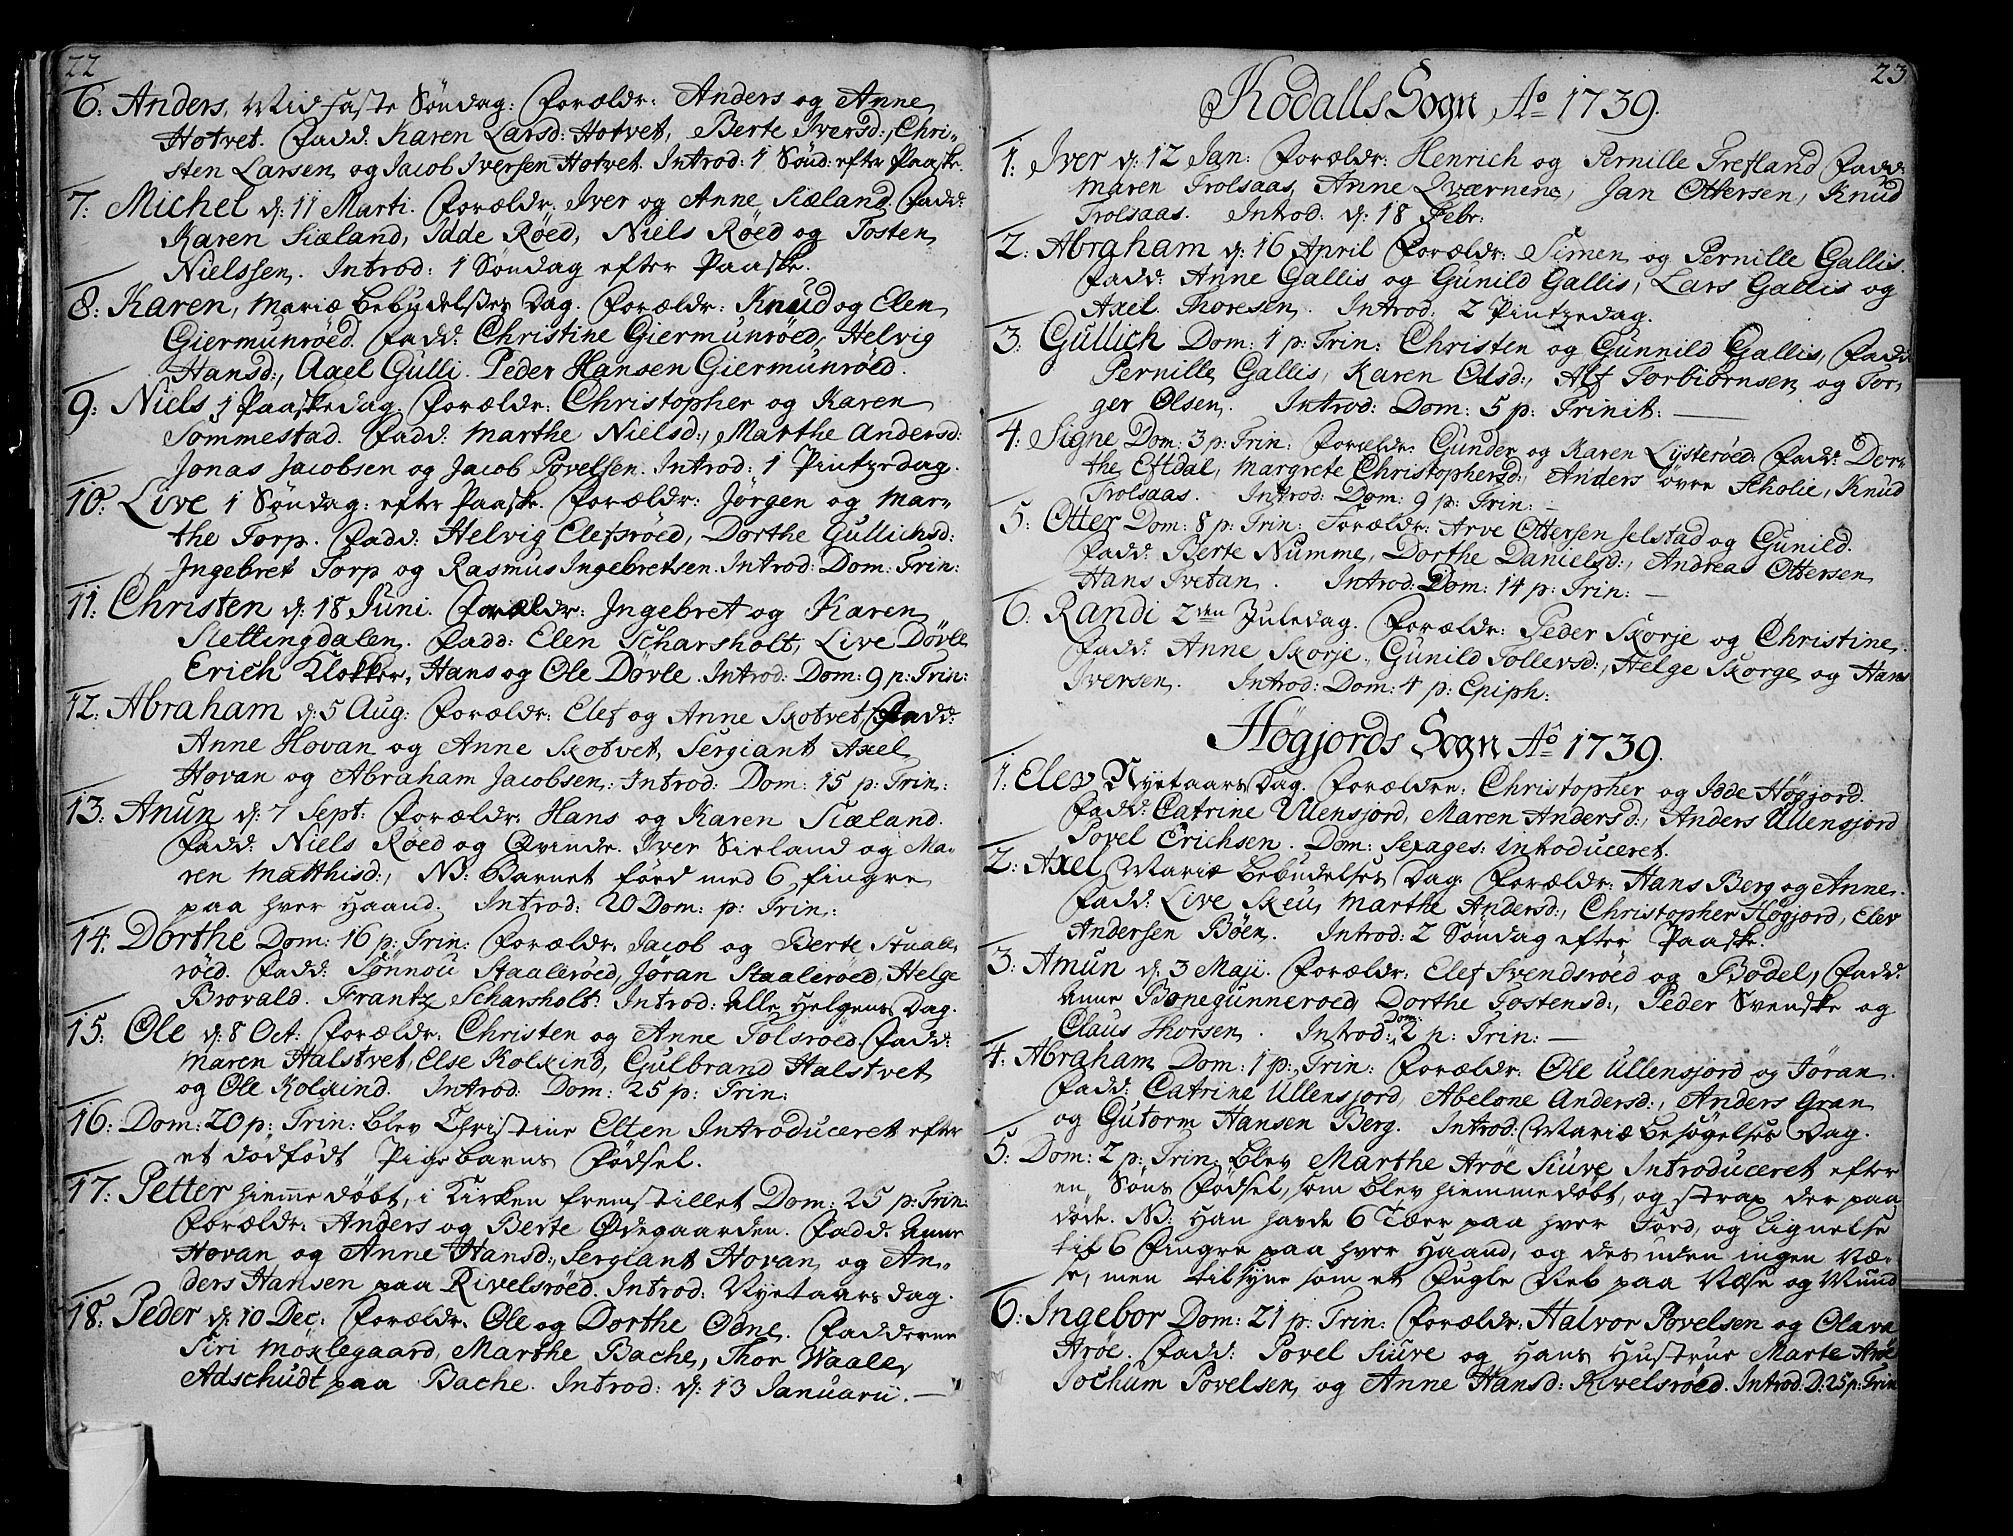 22
6: Anders, Midfaste Söndag: Forældr: Anders og Anne
Hotvet. Fadd: Karen Larsd: Hotvet, Berte Iversd:, Chri-
sten Larsen og Jacob Iversen Hotvet. Introd: 1 Sönd: efter Paaske.
7: Michel d: 11 Marti. Forældr: Iver og Anne Siæland Fadd:
Karen Siæland, Idde Röed, Niels Röed og Tosten
Nielssen. Introd: 1 Söndag efter Paaske.
8: Karen, Mariæ Bebudelses Dag. Forældr: Knud og Elen
Giermunröed. Fadd: Christine Giermunröed, Helvig
Hansd:, Axel Gulli. Peder Hansen Giermunröed.
9: Niels 1 Paaskedag Forældr: Christopher og Karen
Sommestad. Fadd: Marthe Nielsd:, Marthe Andersd:
Jonas Jacobsen og Jacob Povelsen. Introd: 1 Pintzedag.
10: Live 1 Söndag: efter Paaske. Forældr: Jörgen og Mar-
the Torp. Fadd: Helvig Elefsröed, Dorthe Gullichsd:
Ingebret Torp og Rasmus Ingebretsen. Introd: Dom: Trin:
11: Christen d: 18 Juni. Forældr: Ingebret og Karen
Slettingdalen. Fadd: Elen Scharsholt, Live Dövle
Erich Klokker, Hans og Ole Dövle. Introd: Dom: 9 p: Trin:
12: Abraham d: 5 Aug: Forældr: Elef og Anne Skotvet, Fadd:
Anne Hovan og Anne Skotvet, Sergiant Axel
Hovan og Abraham Jacobsen: Introd: Dom: 15 p: Trin:
13: Anun d: 7 Sept: Forældr: Hans og Karen Siæland.
Fadd: Niels Röed og Qvinde. Iver Sieland og Ma-
ren Matthisd:, NB: Barnet föed med 6 fingre
paa hver Haand. Introd: 20 Dom: p: Trin:
14: Dorthe Dom: 16 p: Trin: Forældr: Jacob og Berte Staale-
röed. Fadd: Sönnou Staaleröed, Jöran Staaleröed, Helge
Brovald. Frantz Scharsholt. Introd: Alle Helgens Dag.
15: Ole d: 8 Oct: Forældr: Christen og Anne Tolsröed. Fadd:
Maren Halstvet, Else Kolkind, Gulbrand Halstvet
og Ole Kolkind. Introd: Dom: 25 p: Trin:
16: Dom: 20 p: Trin: blev Christine Elten Introduceret efter
et dödfödt Pigebarns Födsel.
17: Petter hiemmedöbt, i Kirken fremstillet Dom: 25 p: Trin:
Forældr: Anders og Berte Ödegaarden. Fadd: Anne
Hovan og Anne Hansd:, Sergiant Hovan og An-
ders Hansen paa Rivelsröed. Introd: Nyetaarsdag.
18: Peder d: 10 Dec: Forældr: Ole og Dorthe Odne. Fadderne
Siri Möklegaard, Marthe Bache, Thor Waale,
Adschudt paa Bache. Introd: d: 13 Januarii.
23
Kodalls Sogn Ao 1739.
1: Iver d: 12 Jan: Forældr: Henrich og Pernille Trefland Fadd:
Maren Trolsaas, Anne Qværnene, Jan Ottersen, Knud
Trolsaas. Introd: d: 18 Febr:
2: Abraham d: 16 April Forældr: Simen og Pernille Gallis.
Fadd: Anne Gallis og Gunild Gallis, Lars Gallis og
Axel Thoresen. Introd: 2 Pintzedag.
3: Gullich Dom: 1 p: Trin: Christen og Gunnild Gallis, Fadd:
Pernille Gallis, Karen Olsd:, Alf Torbiörnsen og Tor-
ger Olsen. Introd: Dom: 5 p: Trinit:
4: Signe Dom: 3 p: Trin: Forældr: Gunder og Karen Lysteröed. Fadd: Dor-
the Eftdal, Margrete Christophersd:, Anders övre Scholie, Knud
Trolsaas. Introd: Dom: 9 p: Trin:
5: Otter Dom: 8 p: Trin: Forældr: Arve Ottersen Selstad og Gunild.
Fadd: Berte Numme, Dorthe Danielsd:, Andreas Ottersen
Hans Tvetan. Introd: Dom: 14 p: Trin:
6: Randi 2den Juledag. Forældr: Peder Skorje og Christine.
Fadd: Anne Skorje, Gunild Tollevsd:, Helge Skorge og Hans
Iversen. Introd: Dom: 4 p: Epiph:
Högjords Sogn Ao 1739.
1: Elev Nyetaars Dag. Forældre: Christopher og Idde Högjord.
Fadd: Catrine Ullensjord, Maren Andersd:, Anders Ullensjord
Povel Erichsen. Dom: Sexages: introduceret.
2: Axel Mariæ Bebudelses Dag. Forældr: Hans Berg og Anne.
Fadd: Live Skeu, Marthe Andersd:, Christopher Högjord, Elev
Andersen Böen. Introd: 2 Söndag efter Paaske.
3: Amun d: 3 Maji. Forældr: Elef Svendsröed og Bodel, Fadd:
Anne Bonegunneroed, Dorthe Tostensd:, Peder Svenske og
Claus Thorsen. Introd: Dom: 2 p: Trin:
4: Abraham Dom: 1 p: Trin: Forældr: Ole Ullensjord og Jöran.
Fadd: Catrine Ullensjord, Abelone Andersd:, Anders Gran
og Gutorm Hansen Berg. Introd: Mariæ Besögelses Dag.
5: Dom: 2 p: Trin: blev Marthe Aröe Siuve Introduceret efter
en Söns Födsel, som blev hiemmedöbt, og strax der paa
döde. NB: Han havde 6 Tæer paa hver Foed, og Lignelse
til 6 Fingre paa hver Haand, og des uden ingen Næ-
se, men tilsyne som et Fugle Neb paa Næse og Mund
6: Ingebor Dom: 21 p: Trin: Forældr: Halvor Povelsen og Olava
Aröe. Fadd: Povel Siuve og Hans Hustrue Marte Aröe
Jochum Povelsen, og Anne Hansd: Rivelsröed. Introd: D: 25 p: Trin